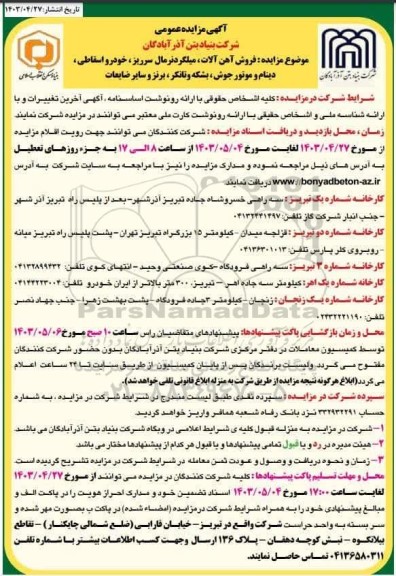 تاریخ انتشار: ۱۴۰۳/۰۴/۲۷
آگهی مزایده عمومی
شرکت بنیاد بتن آذرآبادگان
موضوع مزایده : فروش آهن آلات ، میلگرد نرمال سرریز ، خودرو اسقاطی ،
دینام و موتور جوش ، بشکه و تانکر ، برنز و سایر ضایعات
شرکت بنیاد بتن آذرآبادگان
شرایط شرکت در مزایده : کلیه اشخاص حقوقی با ارائه رونوشت اساسنامه ، آگهی آخرین تغییرات و با
ارائه شناسه ملی و اشخاص حقیقی با ارائه رونوشت کارت ملی معتبر می توانند در مزایده شرکت نمایند.
زمان ، محل بازدید و دریافت اسناد مزایده : شرکت کنندگان می توانند جهت رویت اقلام مزایده
از مورخ ۱۴۰۳/۰۴/۲۷ لغایت مورخ ۱۴۰۳/۰۵/۰۴ از ساعت ۸ الی ۱۷ به جزء روزهای تعطیل
به آدرس های ذیل مراجعه نموده و مدارک مزایده را نیز با مراجعه به سایت شرکت به آدرس
www.bonyadbeton-az.ir دریافت نمایند.
کارخانه شماره یک تبریز : سه راهی خسروشاه جاده تبریز آذرشهر– بعد از پلیس راه تبریز آذر شهر
– جنب انبار شرکت گاز تلفن: ۰۴۱۳۲۴۳۱۴۹۷
کارخانه شماره دو تبریز : قزلجه میدان – کیلومتر ۱۵ بزرگراه تبریز تهران – پشت پلیس راه تبریز میانه
– روبروی کلر پارس تلفن: ۰۴۱۳۶۳۰۱۰۱۳
کارخانه شماره ۳ تبریز : سه راهی فرودگاه –کوی صنعتی وحید – انتهای کوی تلفن: ۰۴۱۳۲۸۹۹۴۳۲
کارخانه شماره یک اهر: کیلومتر سه جاده اهر – تبریز، ۳۰۰ متر بالاتر از ایران خودرو تلفن: ۰۴۱۴۴۲۲۳۰۰۴
کارخانه شماره یک زنجان : زنجان – کیلومتر ۳ جاده فرودگاه – پشت بهشت زهرا – جنب جهاد نصر
تلفن: ۰۲۴۳۲۲۲۱۱۹۰
محل و زمان بازگشایی پاکت پیشنهادها: پیشنهادهای متقاضیان راس ساعت ۱۰ صبح مورخ ۱۴۰۳/۰۵/۰۶
توسط کمیسیون معاملات در دفتر مرکزی شرکت بنیاد بتن آذرآبادگان بدون حضور شرکت کنندگان
مفتوح می گردد. ولیست برندگان پس از پایان کمیسیون از طریق سایت تا ۲۴ ساعت اعلام
می گردد (ابلاغ هرگونه نتیجه مزایده از طریق شرکت به منزله ابلاغ قانونی تلقی خواهد شد).
سپرده شرکت در مزایده : سپرده نقدی طبق لیست مندرج در شرایط شرکت در مزایده به شماره
حساب ۳۳۲۹۳۲۲۹۱ نزد بانک رفاه شعبه همافر واریز خواهد گردید.
۱– شرکت در مزایده به منزله قبول کلیه ی شرایط اعلامی در وبگاه شرکت بنیاد بتن آذرآبادگان می باشد.
۲– هیئت مدیره در رد و یا قبول تمامی پیشنهادها و یا قبول هر کدام از پیشنهادها مختار می باشد.
۳– زمان و نحوه دریافت و وصول و عودت ثمن معامله در شرایط شرکت در مزایده تشریح گردیده است.
محل و مهلت تسلیم پاکت پیشنهادها : کلیه شرکت کنندگان در مزایده می توانند از مورخ ۱۴۰۳/۰۴/۲۷
لغایت ساعت ۱۷:۰۰ مورخ ۱۴۰۳/۰۵/۰۴ اسناد تضمین خود و مدارک احراز هویت را در پاکت الف و
مبالغ پیشنهادی خود را به همراه شرایط شرکت در مزایده (امضاء شده) در پاکت ب بصورت مهر شده و
سر بسته به واحد حراست شرکت واقع در تبریز– خیابان فارابی (ضلع شمالی چایکنار) – تقاطع
بیلانکوه – نبش کوچه دهقان – پلاک ۱۳۶ ارسال وجهت کسب اطلاعات بیشتر با شماره تلفن
۰۴۱۳۶۵۸۰۳۱۱ تماس حاصل نمایند.
ParsNamadData